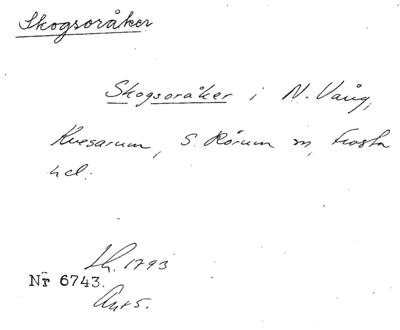 Skogsoråker
Skogsoråker i N. Vång,
Kvesarum, S. Rörum m, Frosta
hd.
Lh. 1793
Nr 6743.
Ant 5.